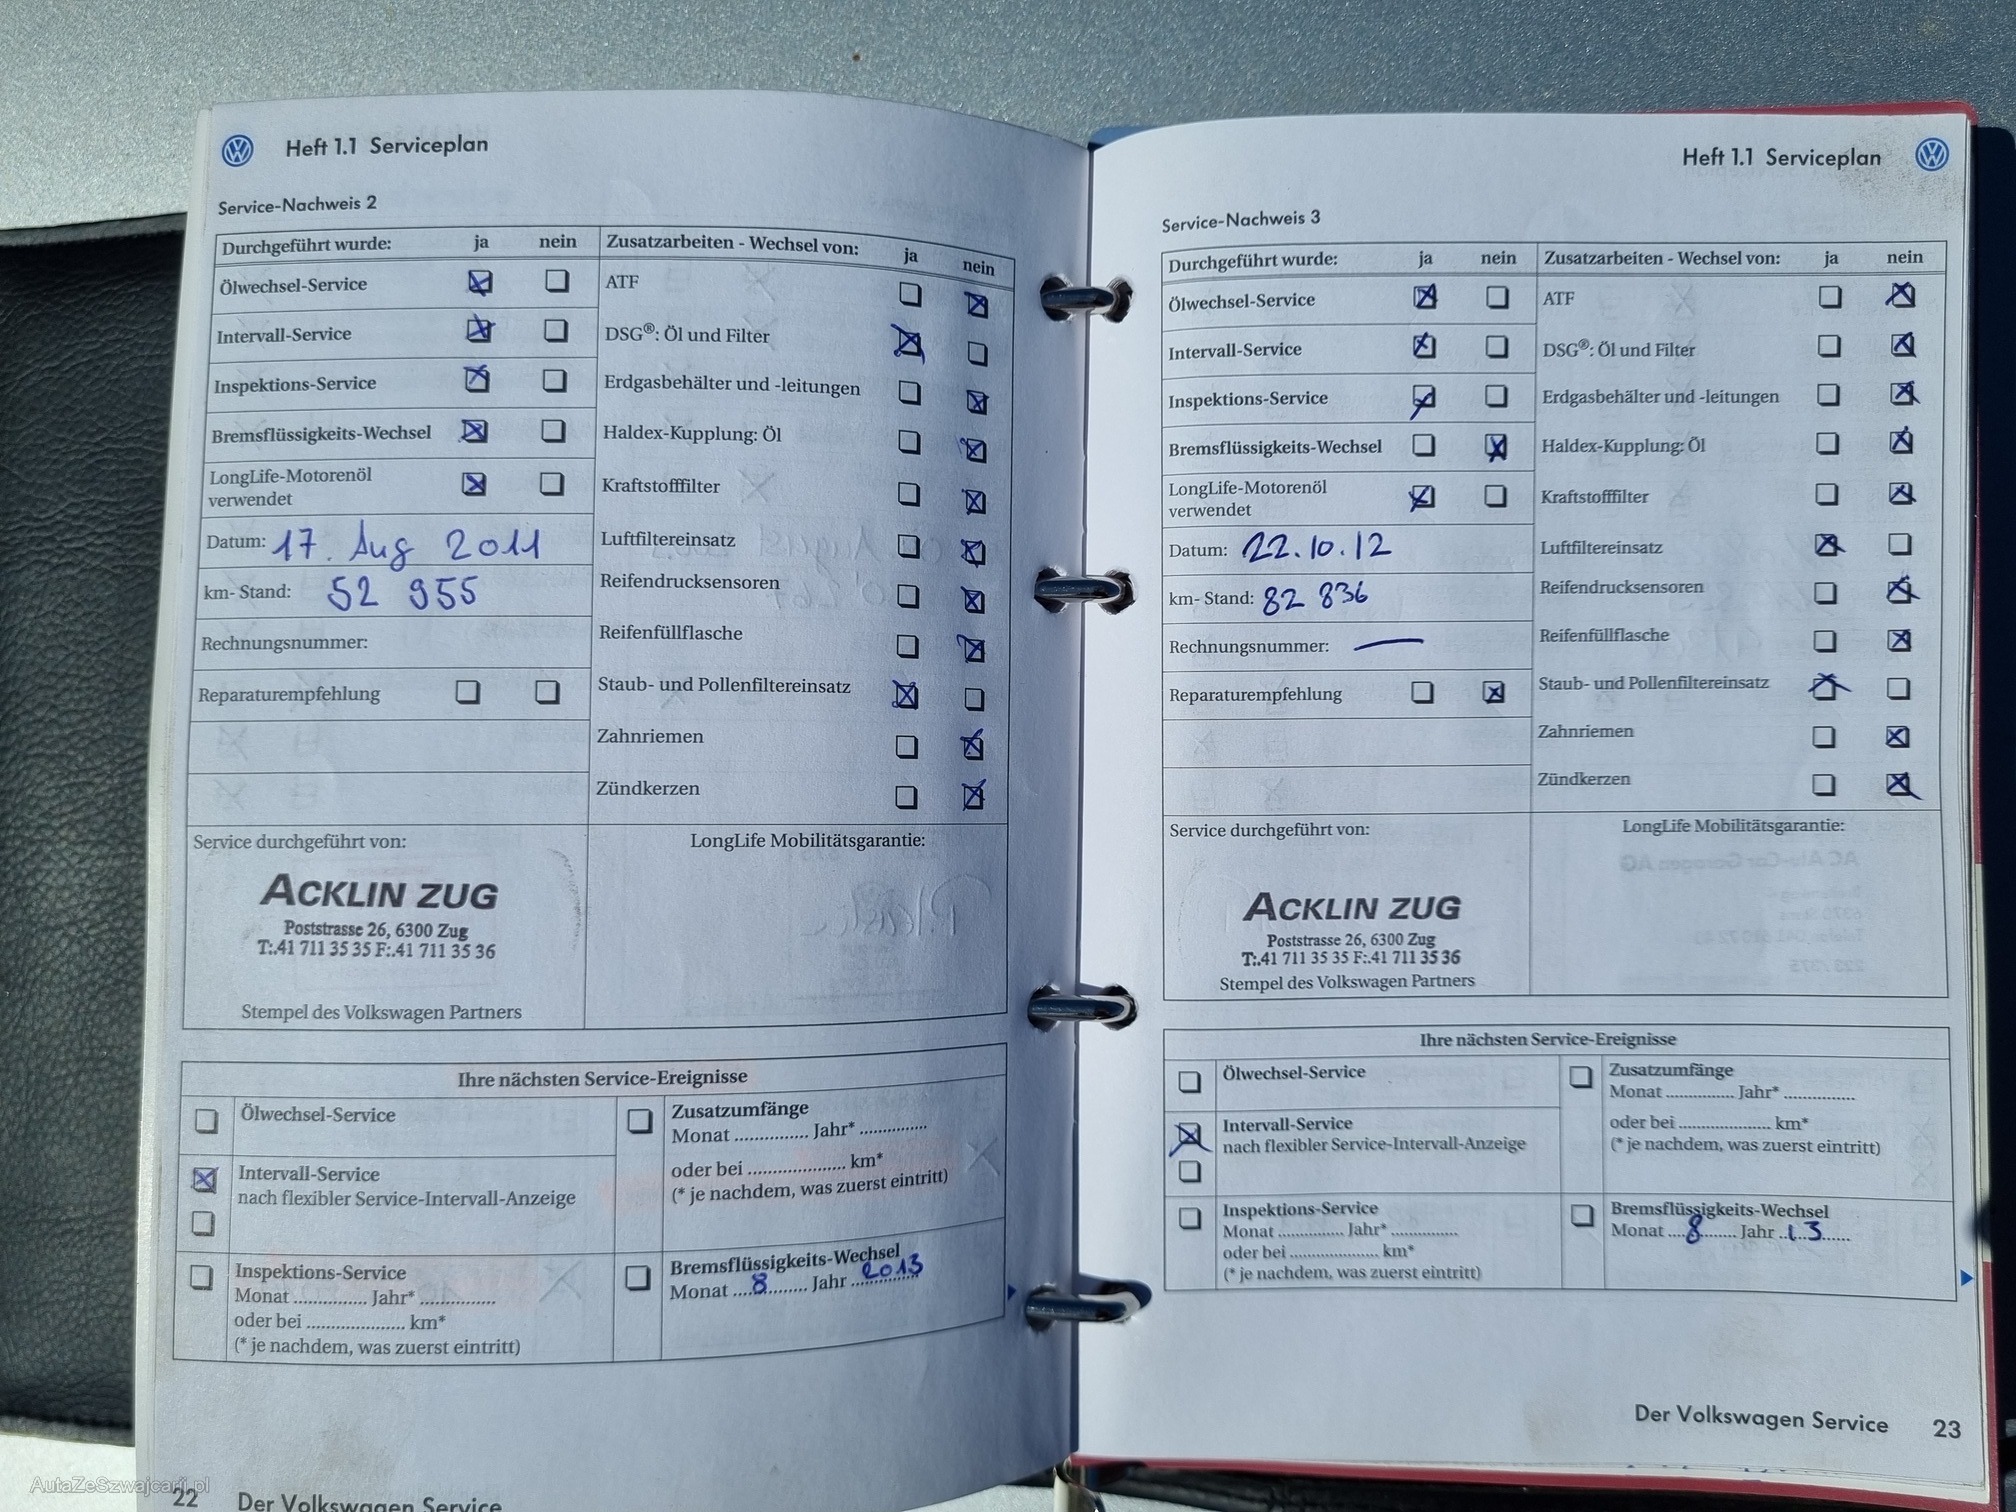 Heft 1.1 Serviceplan
Service-Nachweis 2
Durchgeführt wurde: ja nein
Ölwechsel-Service
Intervall-Service
Inspektions-Service
Bremsflüssigkeits-Wechsel
LongLife-Motorenöl
verwendet
Datum: 17. Aug 2011
km- Stand: 52 955
Rechnungsnummer:
Reparaturempfehlung
Zusatzarbeiten - Wechsel von: ja nein
ATF
DSG®: Öl und Filter
Erdgasbehälter und -leitungen
Haldex-Kupplung: Öl
Kraftstofffilter
Luftfiltereinsatz
Reifendrucksensoren
Reifenfüllflasche
Staub- und Pollenfiltereinsatz
Zahnriemen
Zündkerzen
Service durchgeführt von:
ACKLIN ZUG
Poststrasse 26, 6300 Zug
T:.41 711 35 35 F:.41 711 35 36
Stempel des Volkswagen Partners
LongLife Mobilitätsgarantie:
Ihre nächsten Service-Ereignisse
Ölwechsel-Service
Intervall-Service
nach flexibler Service-Intervall-Anzeige
Inspektions-Service
Monat .............. Jahr* ..............
oder bei .................... km*
(* je nachdem, was zuerst eintritt)
Zusatzumfänge
Monat .............. Jahr* ..............
oder bei .................... km*
(* je nachdem, was zuerst eintritt)
Bremsflüssigkeits-Wechsel
Monat ....8........ Jahr ..2013..
22 Der Volkswagen Service
Heft 1.1 Serviceplan
Service-Nachweis 3
Durchgeführt wurde: ja nein
Ölwechsel-Service
Intervall-Service
Inspektions-Service
Bremsflüssigkeits-Wechsel
LongLife-Motorenöl
verwendet
Datum: 22.10.12
km- Stand: 82 836
Rechnungsnummer: —
Reparaturempfehlung
Zusatzarbeiten - Wechsel von: ja nein
ATF
DSG®: Öl und Filter
Erdgasbehälter und -leitungen
Haldex-Kupplung: Öl
Kraftstofffilter
Luftfiltereinsatz
Reifendrucksensoren
Reifenfüllflasche
Staub- und Pollenfiltereinsatz
Zahnriemen
Zündkerzen
Service durchgeführt von:
ACKLIN ZUG
Poststrasse 26, 6300 Zug
T:.41 711 35 35 F:.41 711 35 36
Stempel des Volkswagen Partners
LongLife Mobilitätsgarantie:
Ihre nächsten Service-Ereignisse
Ölwechsel-Service
Intervall-Service
nach flexibler Service-Intervall-Anzeige
Inspektions-Service
Monat .............. Jahr* ..............
oder bei .................... km*
(* je nachdem, was zuerst eintritt)
Zusatzumfänge
Monat .............. Jahr* ..............
oder bei .................... km*
(* je nachdem, was zuerst eintritt)
Bremsflüssigkeits-Wechsel
Monat ....8....... Jahr ..13......
Der Volkswagen Service 23
AutaZeSzwajcarii.pl